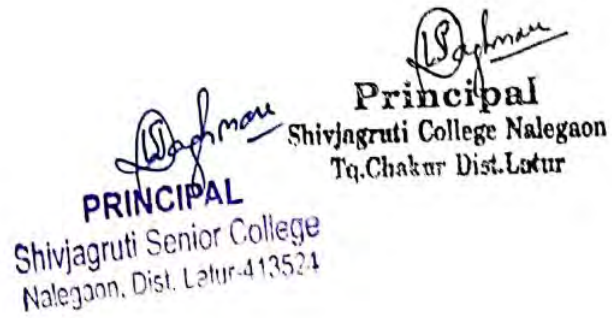 Principal
Shivjagruti College Nalegaon
Tq.Chakur Dist.Latur
PRINCIPAL
Shivjagruti Senior College
Nalegaon, Dist. Latur-413524